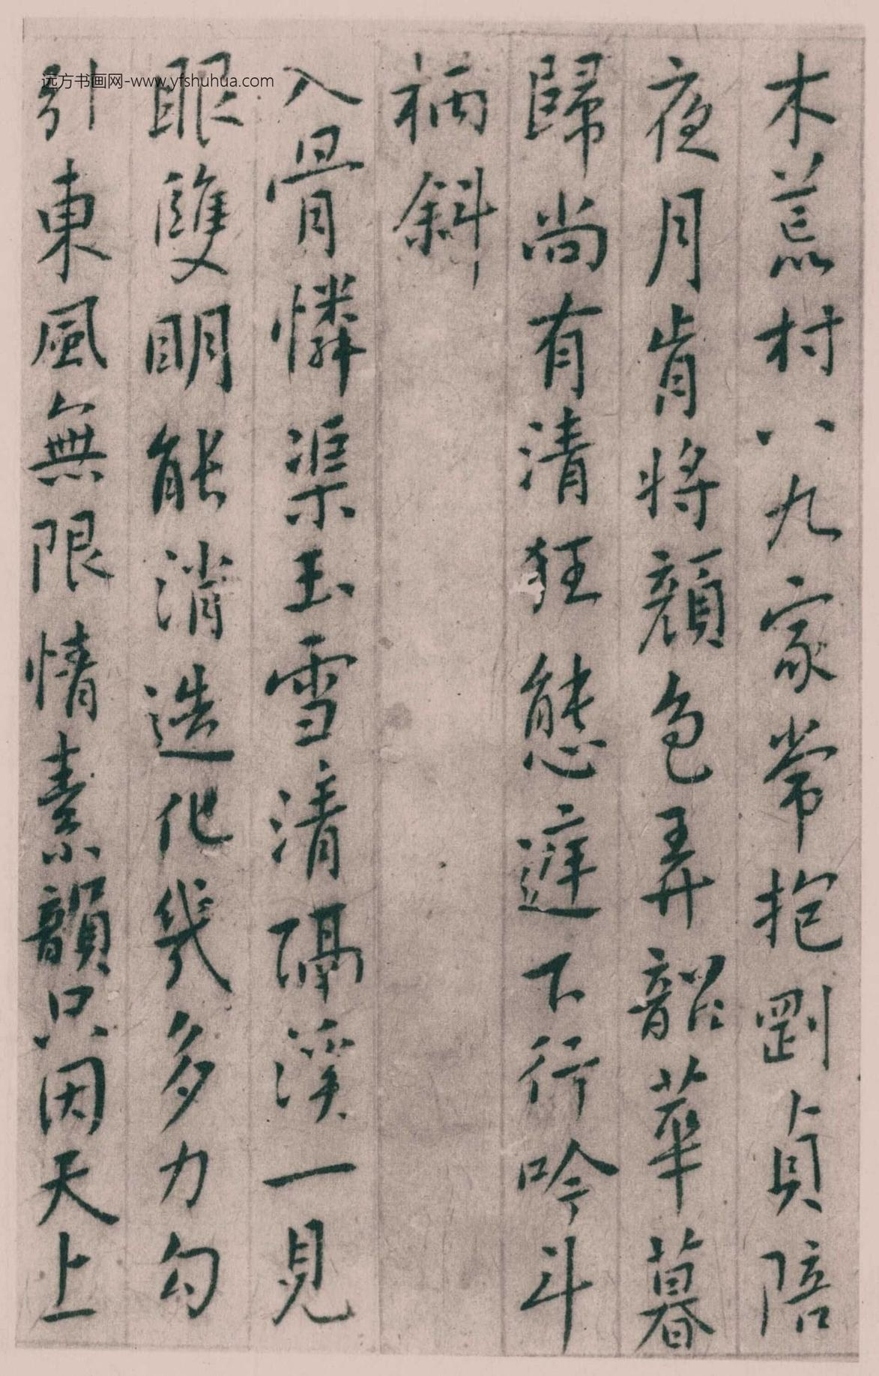 木荒村八九家常抱剛貞陪
夜月肯將顏色弄韶華暮
歸尚有清狂態遲下行吟斗
柄斜
入骨憐渠玉雪清隔溪一見
眼雙明能消造化幾多力勾
引東風無限情素韻只因天上
远方书画网-www.yfshuhua.com